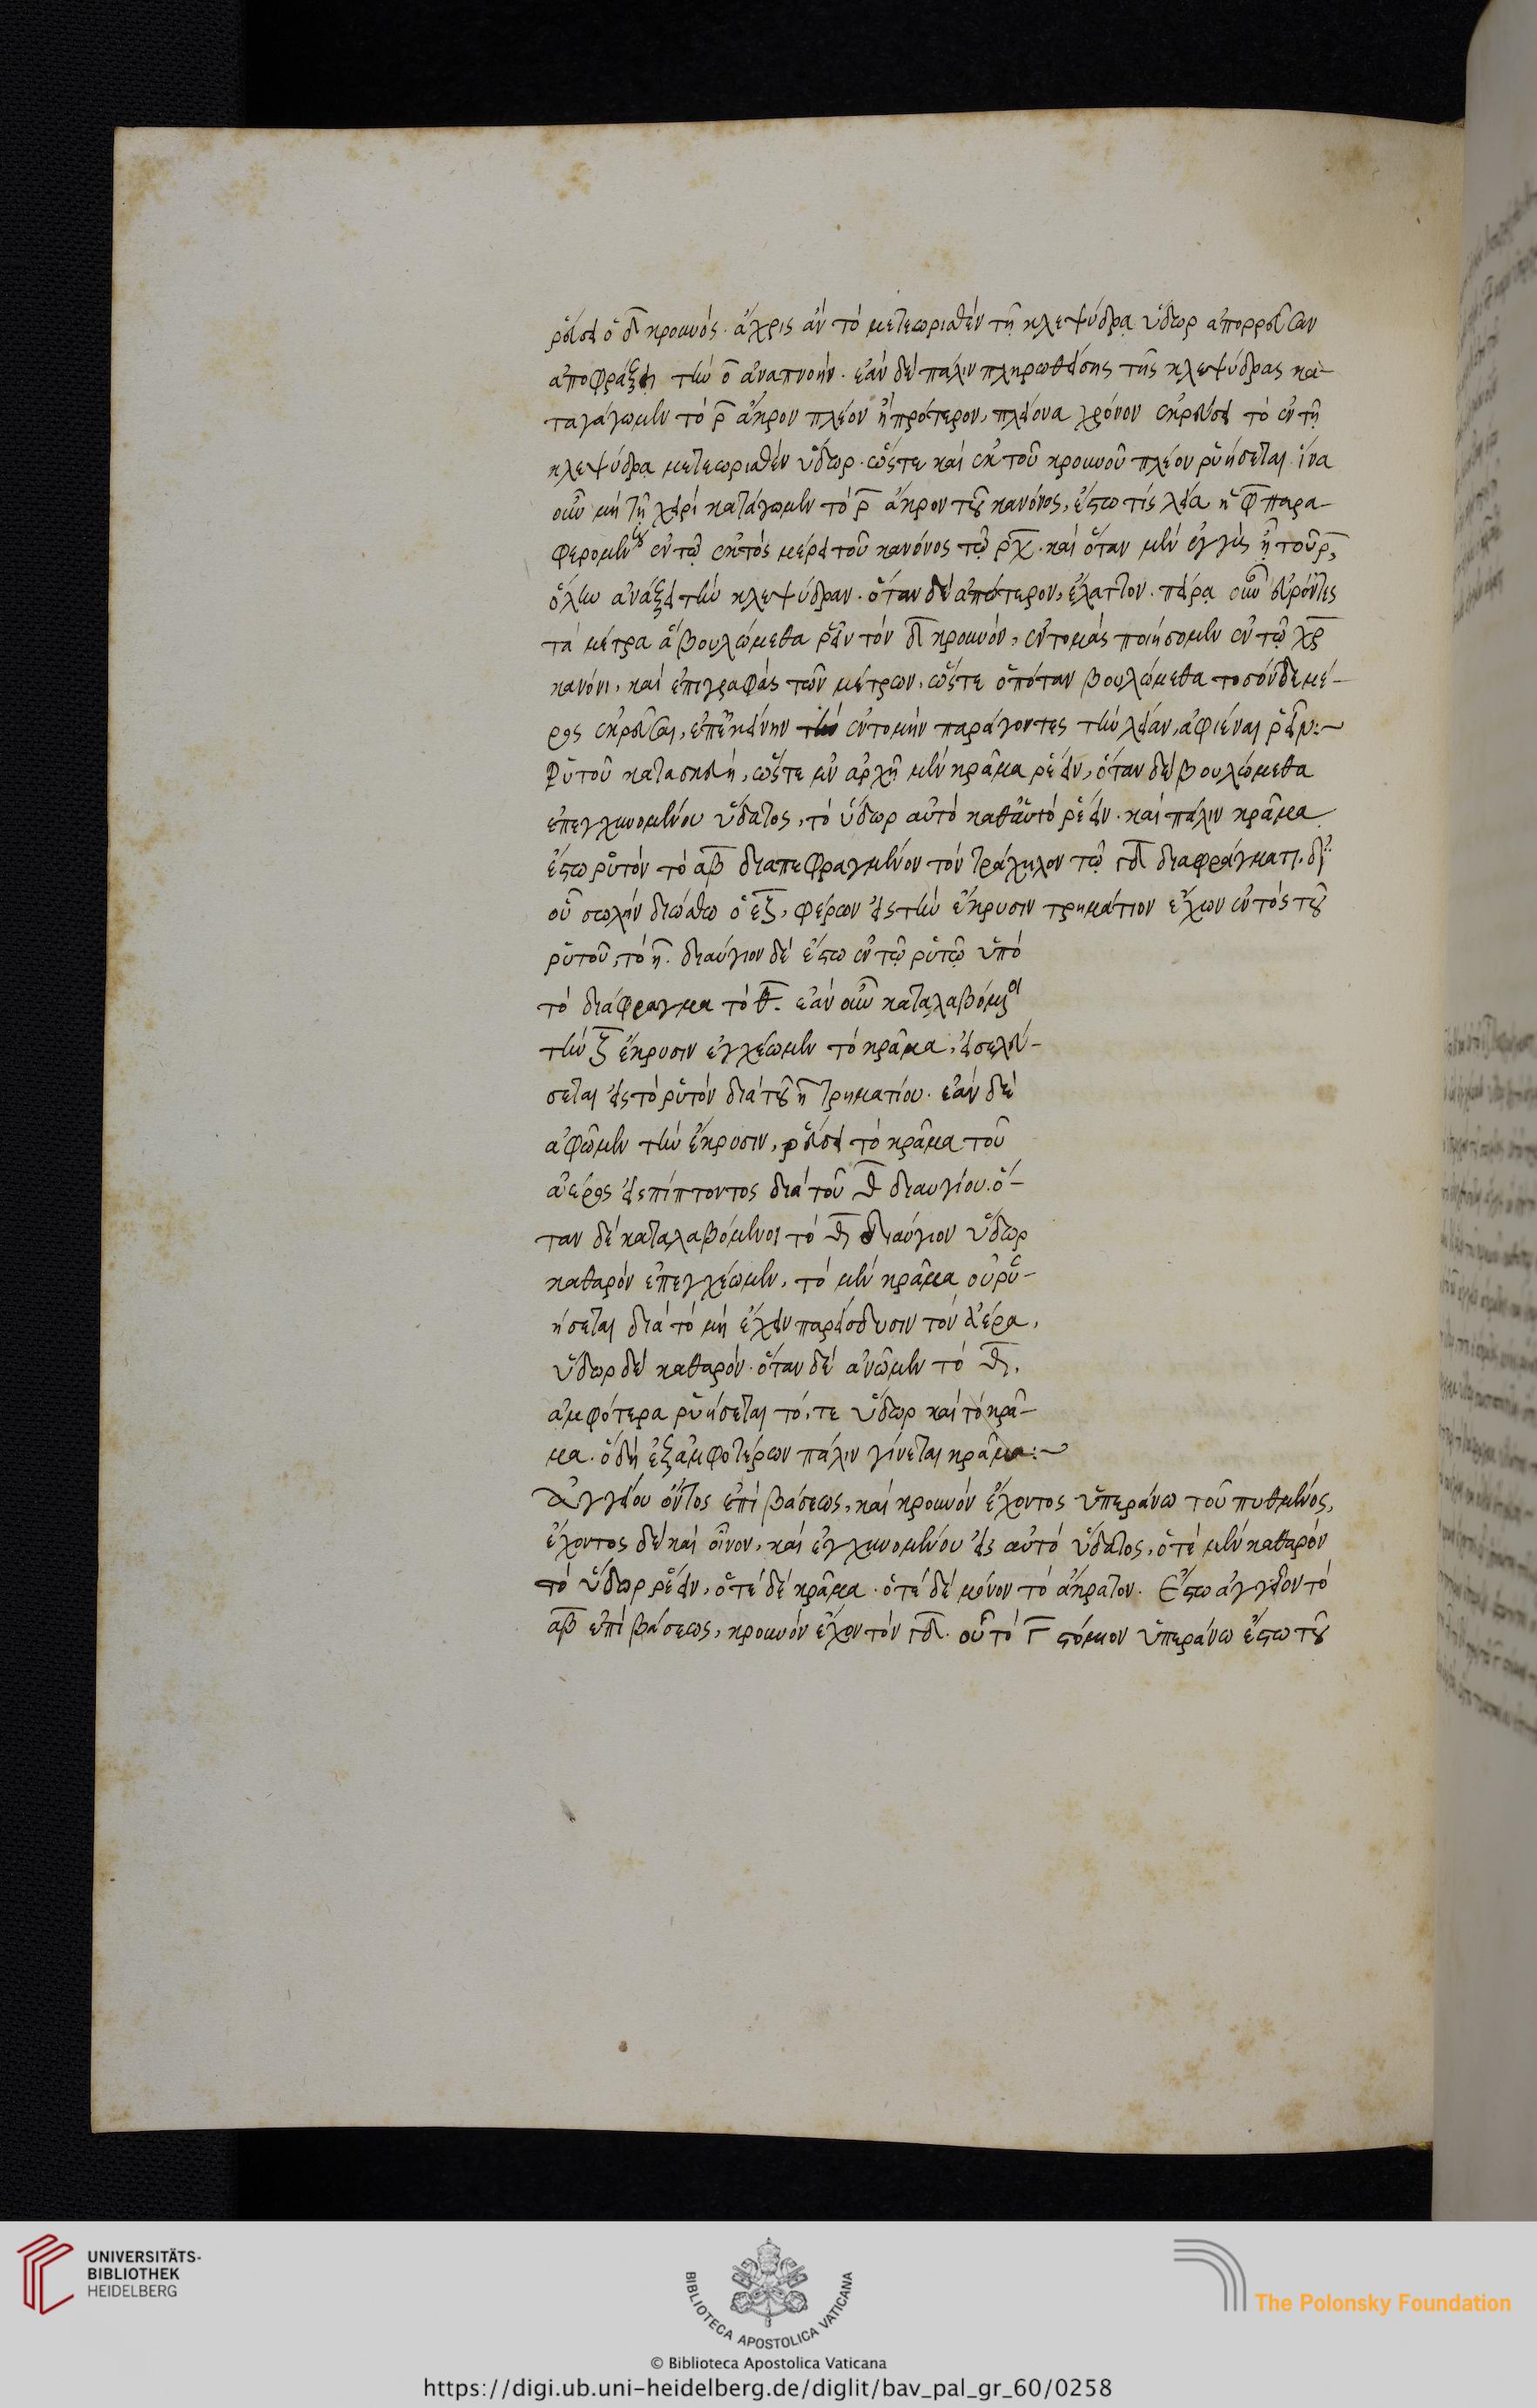 ῥεύσει ὁ δ̅ κρουνός. ἄχρις ἂν τὸ μετεωρισθὲν τῆ κλεψύδρα ὕδωρ ἀπορρεῦσαν
ἀποφράξῃ τὴν ο̅ ἀναπνοήν. ἐὰν δὲ πάλιν πληρωθείσης τῆς κλεψύδρας κα-
ταγάγωμεν τὸ ρ̅ ἄκρον πλέον ἢ πρότερον, πλείονα χρόνον ἐκρεύσει τὸ ἐν τῆ
κλεψύδρα μετεωρισθὲν ὕδωρ. ὥστε καὶ ἐκ τοῦ κρουνοῦ πλέον ῥυήσεται. ἵνα
οὖν μὴ τῆ χειρὶ κατάγωμεν τὸ ρ̅ ἄκρον τοῦ κανόνος, ἔστω τίς λεία ἡ φ̅ παρα-
φερομένου ἐν τῶ ἐκτὸς μέρει τοῦ κανόνος τῶ ρ̅χ̅. καὶ ὅταν μὲν ἐγγὺς ᾖ τοῦ ρ̅,
ὅλην ἀνάξει τὴν κλεψύδραν. ὅταν δὲ ἀπώτερον, ἔλαττον. πείρα οὖν εὑρόντες
τὰ μέτρα ἃ βουλώμεθα ῥεῖν τὸν δ̅ κρουνόν, ἐντομὰς ποιήσομεν ἐν τῶ χ̅ρ̅
κανόνι, καὶ ἐπιγραφὰς τῶν μέτρων, ὥστε ὁπόταν βουλώμεθα τοσόνδε μέ-
ρος ἐκρεῦσαι, ἐπ' ἐκείνην τὴν ἐντομὴν παράγοντες τὴν λείαν, ἀφιέναι ῥεῖν:~
Ῥυτοῦ κατασκευή, ὥστε ἐν ἀρχῆ μὲν κρᾶμα ῥέειν, ὅταν δὲ βουλώμεθα
ἐπεγχυνομένου ὕδατος, τὸ ὕδωρ αὐτὸ καθ' αὑτὸ ῥέειν. καὶ πάλιν κρᾶμα
ἔστω ῥυτὸν τὸ α̅β̅ διαπεφραγμένον τὸν τράχηλον τῶ γ̅δ̅ διαφράγματι. δι'
οὗ σωλὴν διώσθω ὁ ε̅ζ̅, φέρων εἰς τὴν ἔκρυσιν τρημάτιον ἔχων ἐντὸς τοῦ
ῥυτοῦ, τὸ η̅. διαύγιον δὲ ἔστω ἐν τῶ ῥυτῶ ὑπὸ
τὸ διάφραγμα τὸ θ̅. ἐὰν οὖν καταλαβόμενοι
τὴν ζ̅ ἔκρυσιν ἐγχέωμεν τὸ κρᾶμα, εἰσελεύ-
σεται εἰς τὸ ῥυτὸν διὰ τοῦ η̅ τρηματίου. ἐὰν δὲ
ἀφῶμεν τὴν ἔκρυσιν, ῥεύσει τὸ κρᾶμα τοῦ
ἀέρος εἰσπίπτοντος διὰ τοῦ θ̅ διαυγίου. ὅ-
ταν δὲ καταλαβόμενοι τὸ θ̅ διαύγιον ὕδωρ
καθαρὸν ἐπεγχέωμεν, τὸ μὲν κρᾶμα οὐ ῥυ-
ήσεται διὰ τὸ μὴ ἔχειν παρείσδυσιν τὸν ἀέρα,
ὕδωρ δὲ καθαρόν. ὅταν δὲ ἀνῶμεν τὸ θ̅,
ἀμφότερα ῥυήσεται τό, τε ὕδωρ καὶ τὸ κρᾶ-
μα. ὃ δὴ ἐξ ἀμφοτέρων πάλιν γίνεται κρᾶμα:~
Ἀγγείου ὄντος ἐπὶ βάσεως, καὶ κρουνὸν ἔχοντος ὑπεράνω τοῦ πυθμένος,
ἔχοντος δὲ καὶ οἶνον, καὶ ἐγχυνομένου εἰς αὐτὸ ὕδατος, ὁτὲ μὲν καθαρὸν
τὸ ὕδωρ ῥέειν, ὁτὲ δὲ κρᾶμα. ὁτὲ δὲ μόνον τὸ ἄκρατον. Ἔστω ἀγγεῖον τὸ
α̅β̅ ἐπὶ βάσεως, κρουνὸν ἔχον τὸν γ̅δ̅. οὗ τὸ γ̅ στόμιον ὑπεράνω ἔστω τοῦ
UNIVERSITÄTS-
BIBLIOTHEK
HEIDELBERG
BIBLIOTECA APOSTOLICA VATICANA
The Polonsky Foundation
© Biblioteca Apostolica Vaticana
https://digi.ub.uni-heidelberg.de/diglit/bav_pal_gr_60/0258